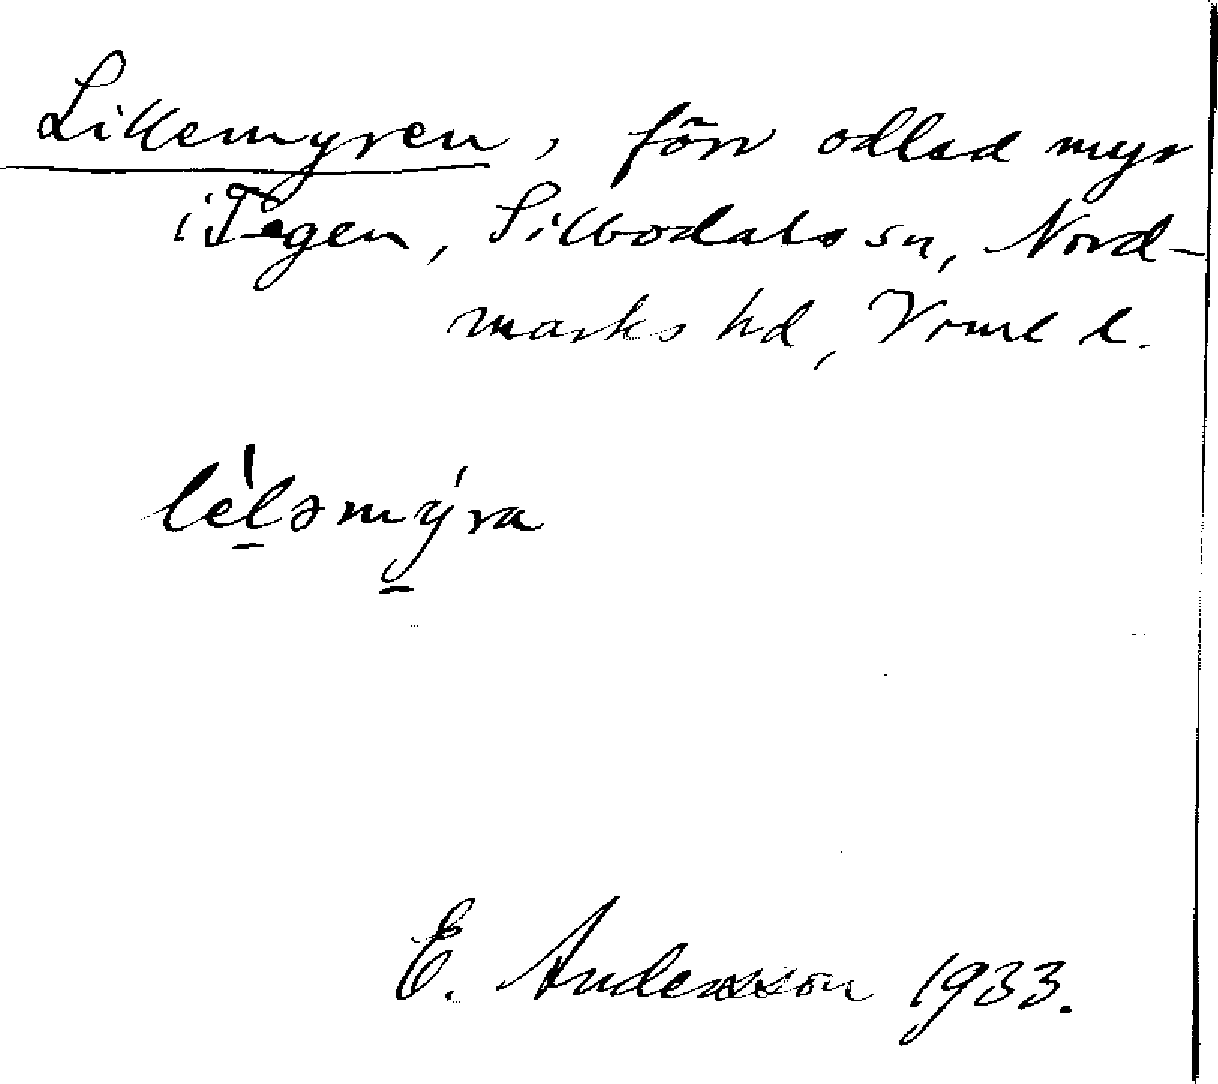 Lillemyren, förr odlad myr
i Tegen, Silbodals sn, Nord-
marks hd, Vrml l.
lèləmýra
E. Andersson 1933.